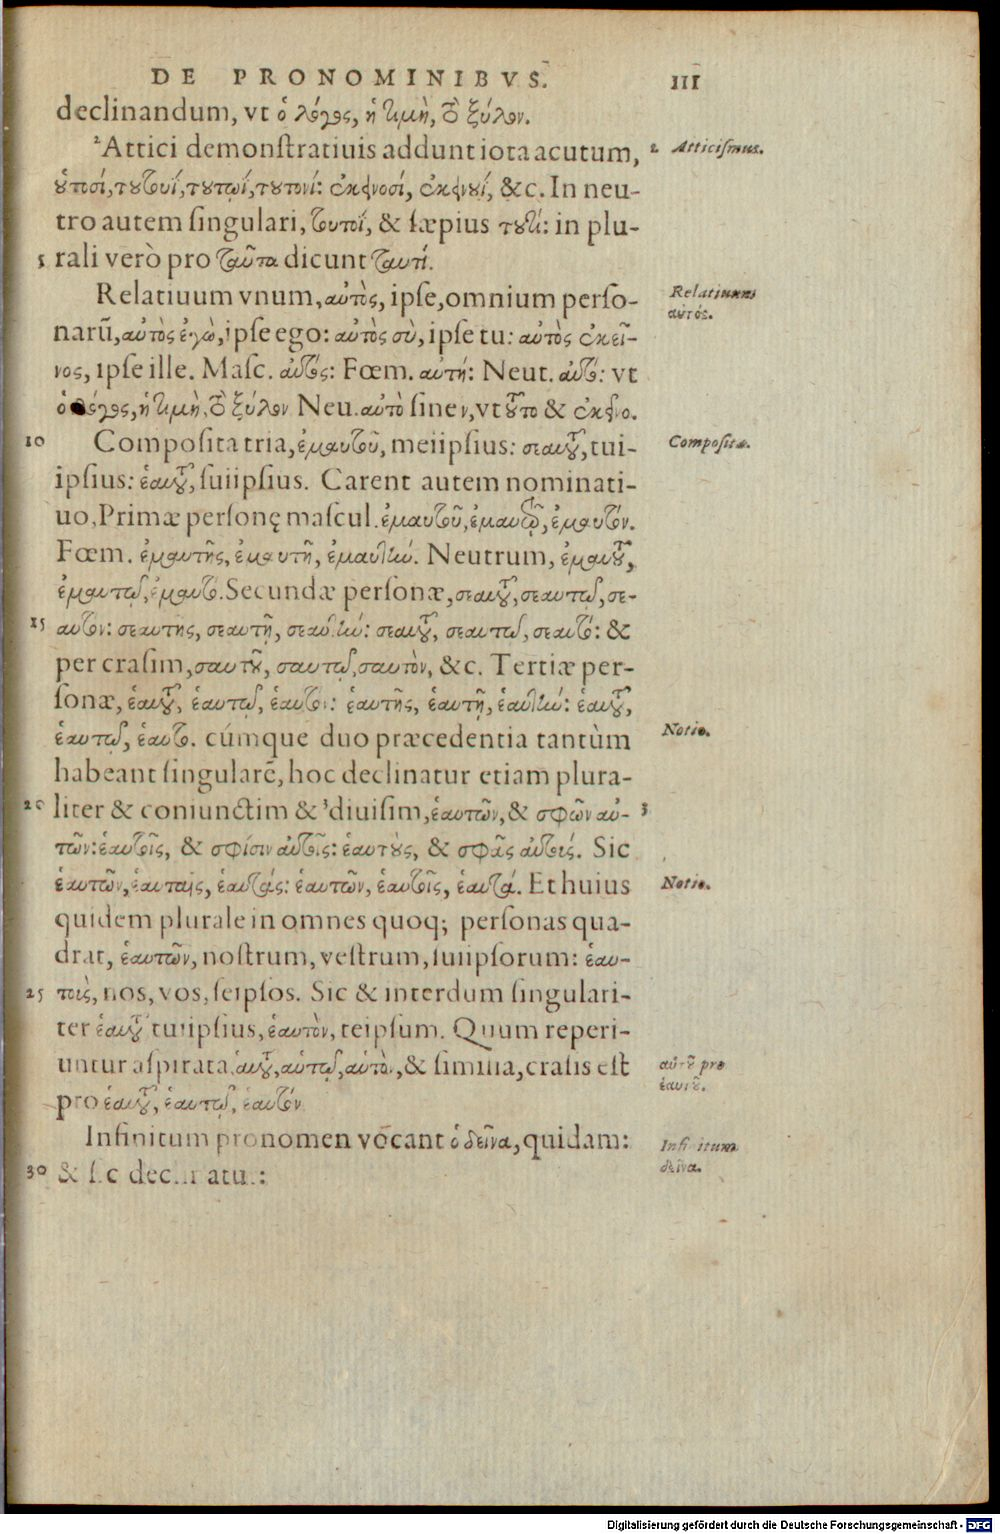 DE PRONOMINIBVS. 111
declinandum, vt ὁ λόγος, ἡ τιμὴ, τὸ ξύλον.
²Attici demonſtratiuis addunt iota acutum, 2 Atticiſmus.
οὑτοσί, τουτουΐ, τουτῳΐ, τουτονί: ἐκεινοσί, ἐκεινουΐ, &c. In neu-
tro autem ſingulari, τουτοΐ, & ſæpius τουτί: in plu-
5 rali verò pro ταῦτα dicunt ταυτί.
Relatiuum vnum, αὐτὸς, ipſe, omnium perſo- Relatiuum
narū, αὐτὸς ἐγὼ, ipſe ego: αὐτὸς σὺ, ipſe tu: αὐτὸς ἐκεῖ- αὐτός.
νος, ipſe ille. Maſc. αὐτός: Fœm. αὐτή: Neut. αὐτό: vt
ὁ λόγος, ἡ τιμὴ, τὸ ξύλον Neu. αὐτὸ ſine ν, vt τοῦτο & ἐκεῖνο.
10 Compoſita tria, ἐμαυτοῦ, meiipſius: σεαυτοῦ, tui- Compoſita.
ipſius: ἑαυτοῦ, ſuiipſius. Carent autem nominati-
uo, Primæ perſonę maſcul. ἐμαυτοῦ, ἐμαυτῷ, ἐμαυτόν.
Fœm. ἐμαυτῆς, ἐμαυτῇ, ἐμαυτήν. Neutrum, ἐμαυτοῦ,
ἐμαυτῷ, ἐμαυτό. Secundæ perſonæ, σεαυτοῦ, σεαυτῷ, σε-
15 αυτον: σεαυτης, σεαυτῇ, σεαυτήν: σεαυτοῦ, σεαυτῷ, σεαυτό: &
per craſim, σαυτοῦ, σαυτῷ, σαυτὸν, &c. Tertiæ per-
ſonæ, ἑαυτοῦ, ἑαυτῷ, ἑαυτόν: ἑαυτῆς, ἑαυτῇ, ἑαυτήν: ἑαυτοῦ,
ἑαυτῷ, ἑαυτο. cúmque duo præcedentia tantùm Notio.
habeant ſingularē, hoc declinatur etiam plura-
20 liter & coniunctim & ³diuiſim, ἑαυτῶν, & σφῶν αὐ- 3
τῶν: ἑαυτοῖς, & σφίσιν αὐτοῖς: ἑαυτοὺς, & σφᾶς αὐτούς. Sic
ἑαυτῶν, ἑαυταῖς, ἑαυτάς: ἑαυτῶν, ἑαυτοῖς, ἑαυτά. Et huius Notio.
quidem plurale in omnes quoq; perſonas qua-
drat, ἑαυτῶν, noſtrum, veſtrum, ſuiipſorum: ἑαυ-
25 τοὺς, nos, vos, ſeipſos. Sic & interdum ſingulari-
ter ἑαυτοῦ tuiipſius, ἑαυτὸν, teipſum. Quum reperi-
untur aſpirata, αὑτοῦ, αὑτῷ, αὑτὸν, & ſimilia, craſis eſt αὑτοῦ pro
pro ἑαυτοῦ, ἑαυτῷ, ἑαυτόν ἑαυτοῦ.
Infinitum pronomen vocant ὁ δεῖνα, quidam: Infinitum
30 & ſic declinatur: δεῖνα.
Digitalisierung gefördert durch die Deutsche Forschungsgemeinschaft - DFG